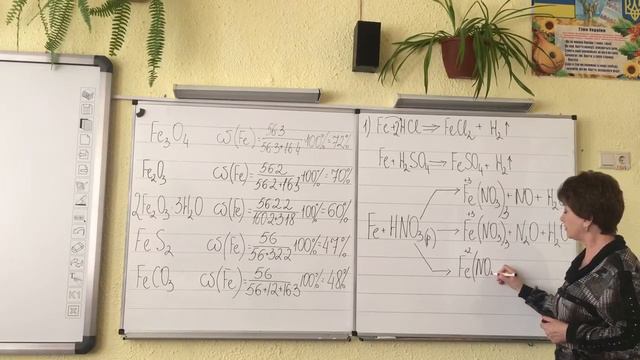 Fe₃O₄ ω(Fe)=56·3/56·3+16·4 100%=72%
Fe₂O₃ ω(Fe)=56·2/56·2+16·3 100%=70%
2Fe₂O₃·3H₂O ω(Fe)=56·2·2/160·2+3·18 100%=60%
FeS₂ ω(Fe)=56/56+32·2 100%=47%
FeCO₃ ω(Fe)=56/56+12+16·3 100%=48%
1) Fe+2HCl ⇒ FeCl₂ + H₂↑
Fe+H₂SO₄ ⇒ FeSO₄ + H₂↑
+3
Fe(NO₃)₃+NO + H₂
+3
Fe+HNO₃(р) → Fe(NO₃)₃+N₂O+H₂O
+2
Fe(NO₃
K1
Гімн України